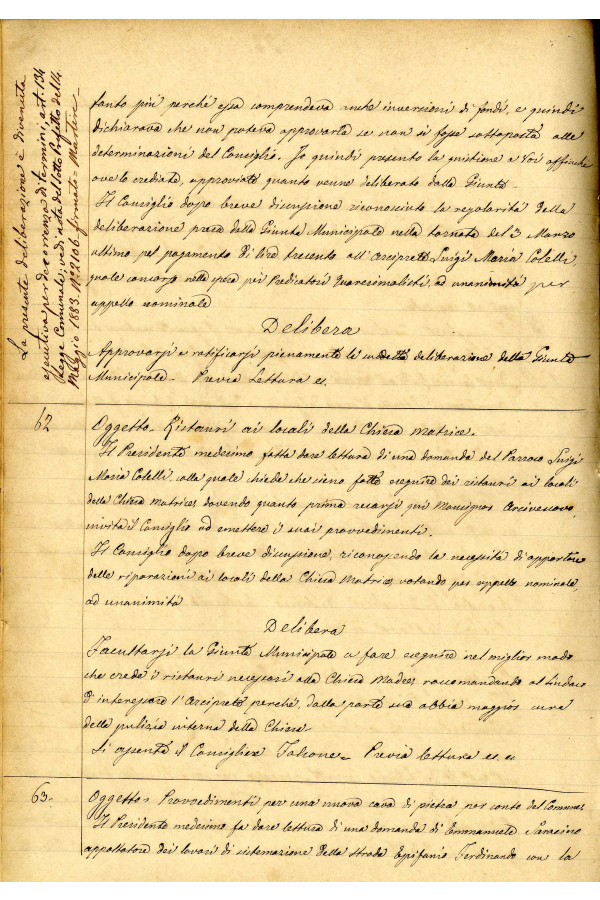 La presente deliberazione è divenuta
esecutiva per decorrenza di termini, art. 134
Legge Comunale; vedi nota del Sotto Prefetto del 14
Maggio 1883. N° 2106. firmato = Martire =
tanto più perché essa comprendeva anche inversioni di fondi, e quindi
dichiarava che non poteva approvarla se non si fosse sottoposta alle
determinazioni del Consiglio. Io quindi presento la quistione a Voi affinche
ove lo crediate, approviate quanto venne deliberato dalla Giunta.
Il Consiglio dopo breve discussione riconosciuta la regolarità della
deliberazione presa dalla Giunta Municipale nella tornata del 3 Marzo
ultimo pel pagamento di lire trecento all'Arciprete Luigi Maria Colelli
quale concorso nella spesa pei Predicatori Quaresimalisti, ad unanimità per
appello nominale
Delibera
Approvarsi e ratificarsi pienamente la suddetta deliberazione della Giunta
Municipale = Previa Lettura ec.
62 Oggetto = Ristauri ai locali della Chiesa Matrice.
Il Presidente medesimo fatta dare lettura di una domanda del Parroco Luigi
Maria Colelli, colla quale chiede che sieno fatti eseguire dei ristauri ai locali
della Chiesa Matrice, dovendo quanto prima recarsi qui Monsignor Arcivescovo,
invita il Consiglio ad emettere i suoi provvedimenti.
Il Consiglio dopo breve discussione, riconoscendo la necessità di apportare
delle riparazioni ai locali della Chiesa Matrice, votando per appello nominale,
ad unanimità
Delibera
Facultarsi la Giunta Municipale a fare eseguire nel miglior modo
che crede i ristauri necessari alla Chiesa Madre, raccomandando al Sindaco
d'interessare l'Arciprete perché, dalla parte sua abbia maggior cura
della pulizia interna della Chiesa.
Si assenta il Consigliere Falcone = Previa lettura ec. ec.
63. Oggetto = Provvedimenti per una nuova cava di pietra per conto del Comune.
Il Presidente medesimo fa dare lettura di una domanda di Emmanuele Saracino
appaltatore dei lavori di sistemazione della strada Epifanio Ferdinando con la